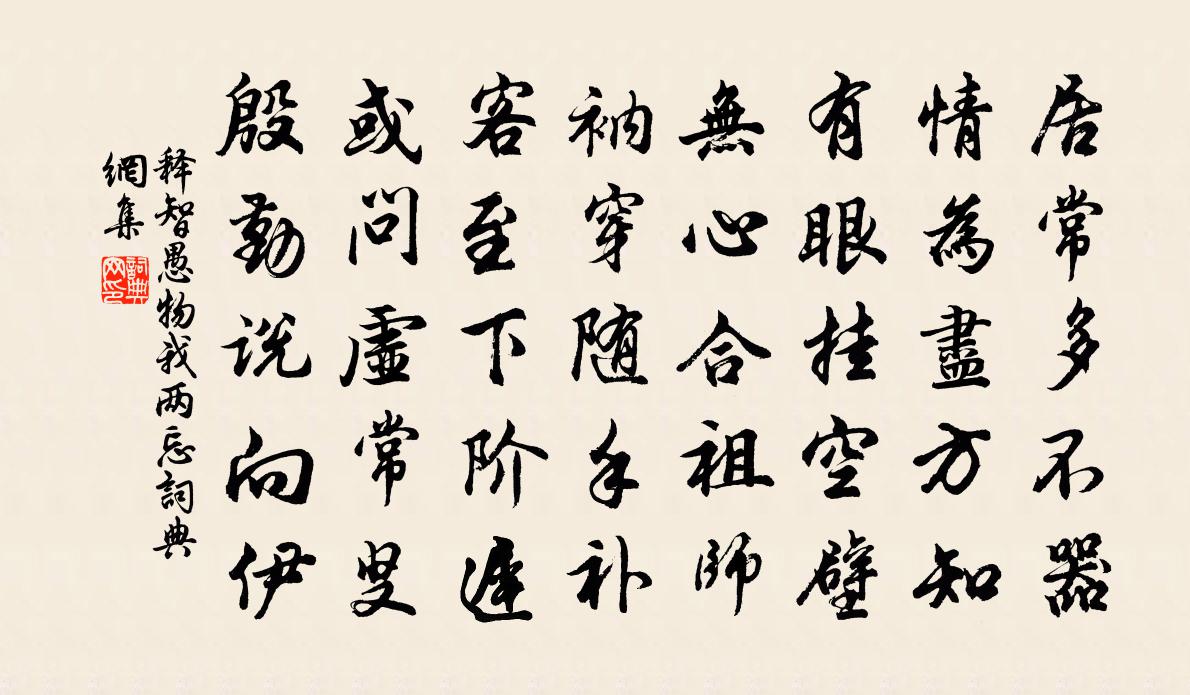 居常多不器
情為盡方知
有眼挂空壁
無心合祖師
衲穿随手补
客至下阶遲
或问虛常叟
殷勤说向伊
释智愚物我两忘詞典
網集
詞典
网印